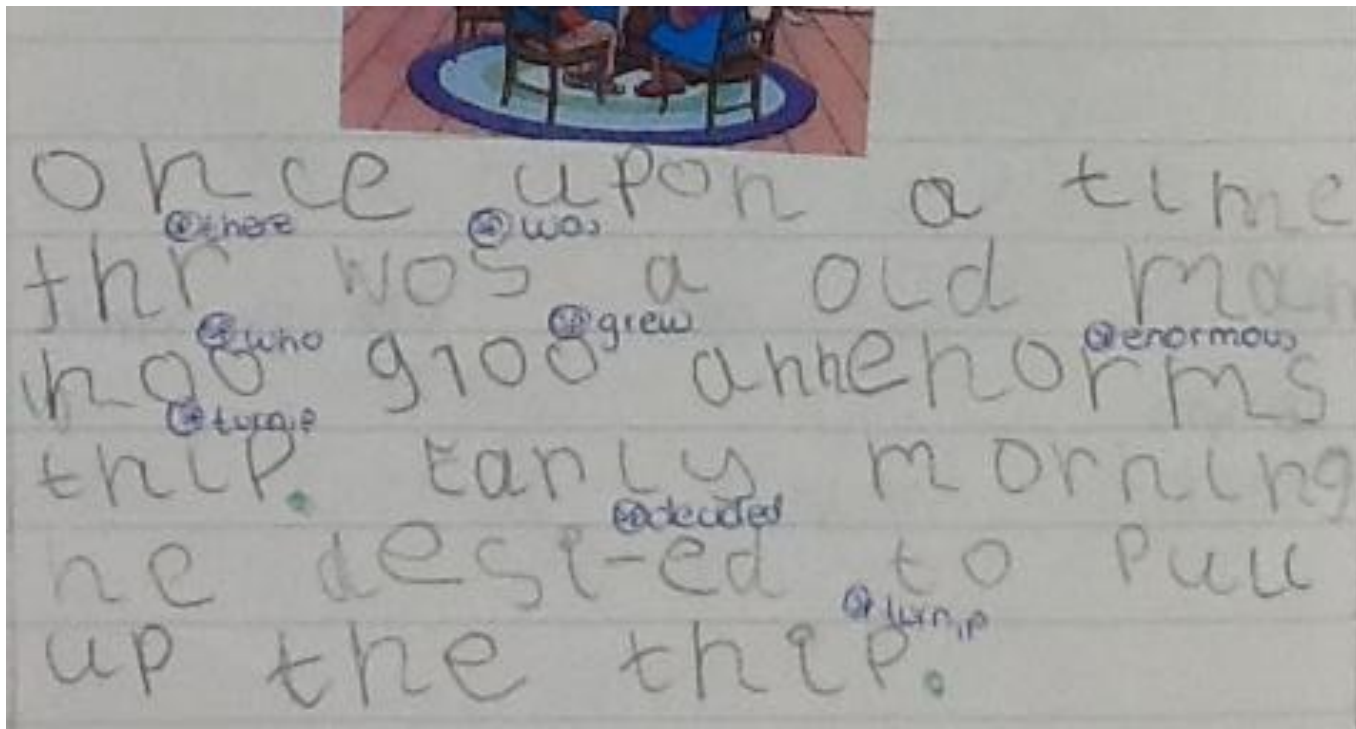 once upon a time
there was
thr wos a old man
who grew enormous
hoo groo annenorms
turnip
thip. Early morning
decided
he desi-ed to pull
turnip
up the thip.